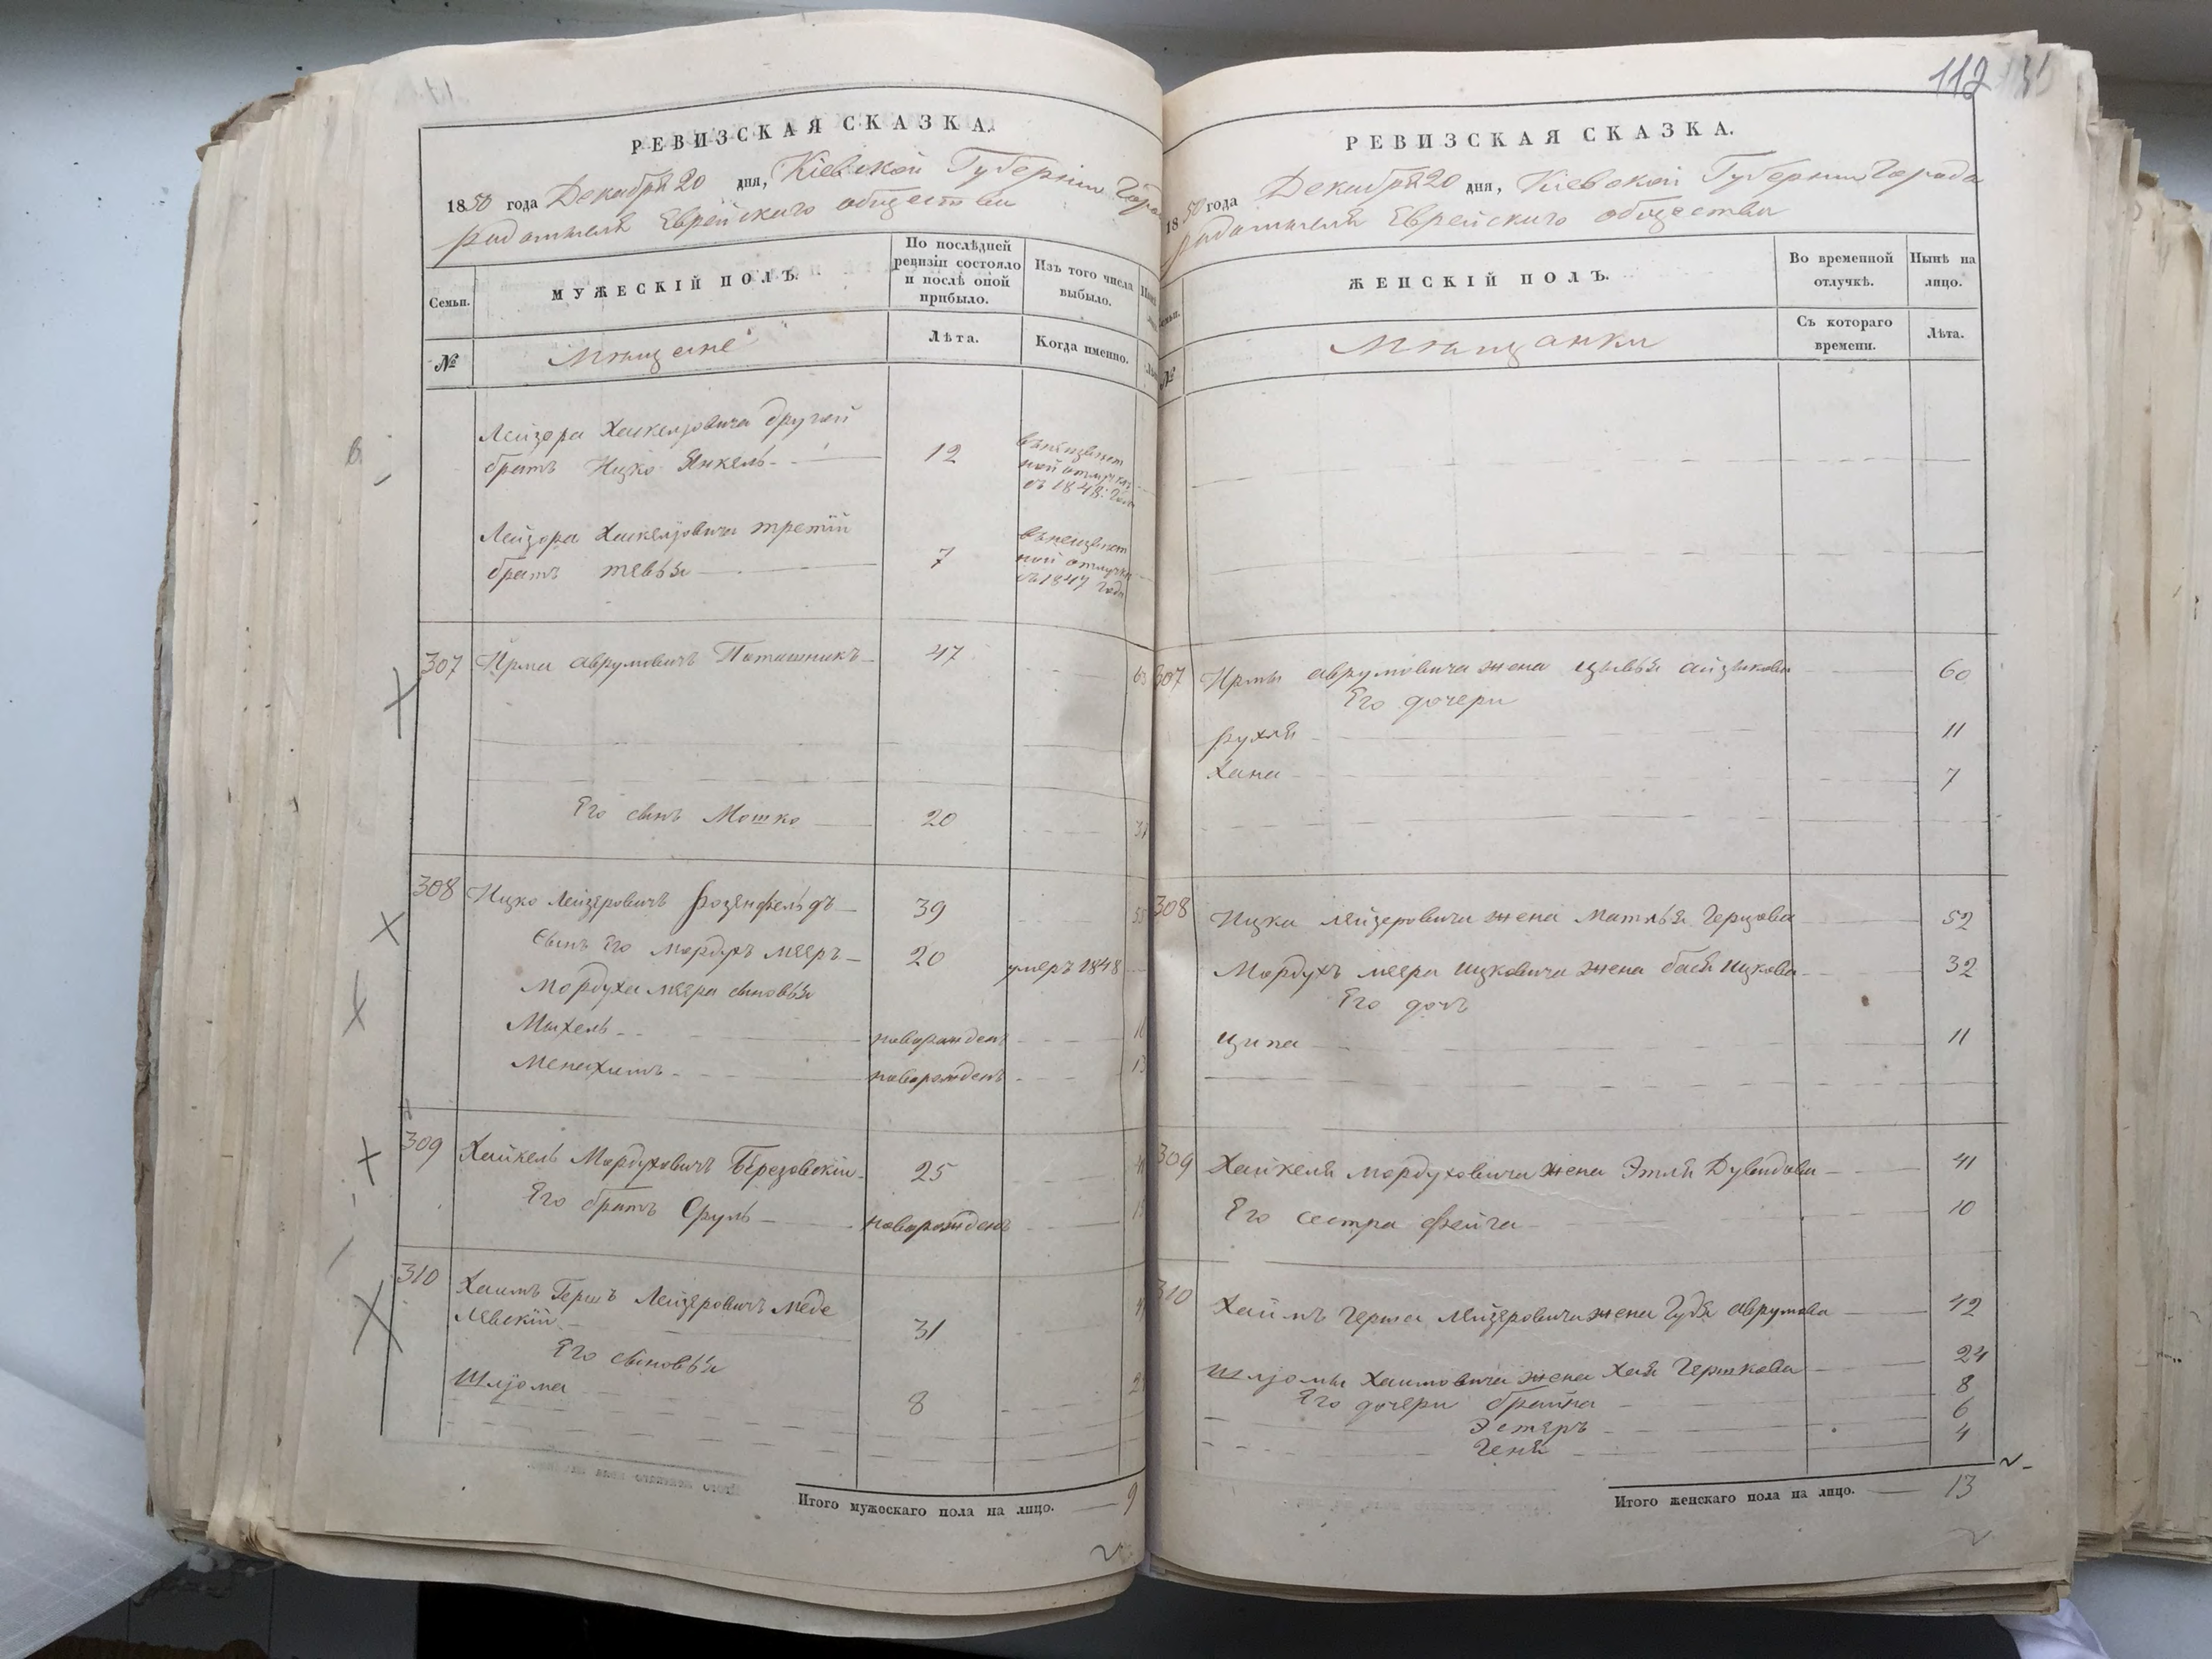 РЕВИЗСКАЯ СКАЗКА.
1850 года Декабря 20 дня, Кіевской Губерніи Горо
радомысля Еврейскаго общества
Семьи.
МУЖЕСКІЙ ПОЛЪ.
По послѣдней ревизіи состояло и послѣ оной прибыло.
Изъ того числа выбыло.
№
Мѣщане
Лѣта.
Когда именно.
Лейзора Хаикелювича другой
братъ Ицко Янкель 12 въ неизвѣст
ной отлучкѣ
съ 1848 года
Лейзора Хаикелювича третій
братъ тевья 7 въ неизвѣст
ной отлучкѣ
съ 1847 года
307 Ирма аврумовичъ Поташникъ 47 63
Его сынъ Мошко 20
308 Ицко Лейзеровичъ розенфельдъ 39
Сынъ Его Мордухъ мееръ 20 умеръ 1848
Мордуха меера сыновья
Михель новорожденъ
Менахимъ новорожденъ 13
309 Хайкель Мордуховичъ Березовскій 25
Его братъ Сруль новорожденъ
310 Хаимъ Гершъ Лейзеровичъ меде
левскій 31
Его сыновья
Шліома 8
Итого мужескаго пола на лицо. 9
112
РЕВИЗСКАЯ СКАЗКА.
1850 года Декабря 20 дня, Кіевской Губерніи Города
радомысля Еврейскаго общества
ЖЕНСКІЙ ПОЛЪ.
Во временной отлучкѣ.
Нынѣ на лицо.
№
Мѣщанки
Съ котораго времени.
Лѣта.
307 Ирмы аврумовича жена цывья айзикова 60
Его дочери
рухля 11
Хана 7
308 Ицка лейзеровича жена Матля Герцова 52
Мордухъ меера ицковича жена бася ицкова 32
Его дочь
ципа 11
309 Хайкеля мордуховича жена Этля Дувидова 41
Его сестра фейга 10
310 Хаимъ герша Лейзеровича жена Гудя аврумова 42
Шліомы Хаимовича жена Хая Гершкова 24
Его дочери брайна 8
Эстеръ 6
Геня 4
Итого женскаго пола на лицо. 13